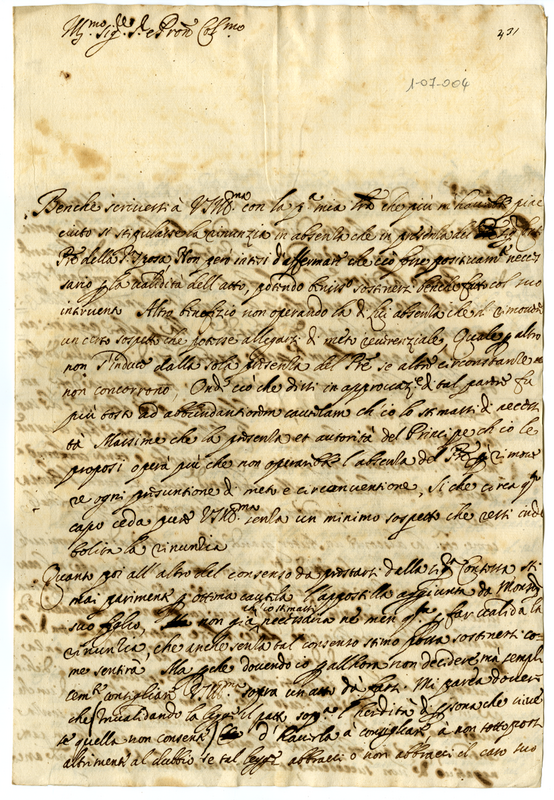 Ill.mo Sig.re S.r e Pron Col.mo
431
1-07-004
Benche scrivessi à V.S. Ill.ma con la p.a mia che più m'haverebbe piac
ciuto si stipulasse la rinunzia in absenza che in presenza del Sig.r
Pre della Sposa Non però intesi d'affermare che ciò fosse positivam.te neces
sario p la validità dell'atto, potendo benis.o sostenersi benche fatto col suo
intervento Altro beneficio non operando la di lui absenza che il rimover
un certo sospetto che potesse allegarsi di meto reverenziale Quale p altro
non s'induce dalla sola presenza del Pre se altre circonstanze no
non concorrono, Onde ciò che dissi in approvaz.e di tal parere fu
più tosto ad abbundantiorem cautelam ch'io lo stimassi di necessi
tà Massime che la presenza et autorità del Principe ch'io le
proposi opera più che non operarebbe l'absenza del Pre in rimove
re ogni presuntione di meto e circonventione, Si che circa q.to
capo ceda pure V.S. Ill.ma senza un minimo sospetto che resti inde
bolita la rinuncia
Quanto poi all'altro del consenso da prestarsi dalla Sig.ra Contessa sti
mai parimente p ottima cautela l'apostilla aggiunta da Mons.r
suo figlio, non già ch'io stimassi necessaria ne men p far valida la
rinunzia, che anche senza tal consenso stimo possa sostenersi co
me sentirà Ma perche dovendo io p all'hora non decidere, mà sempli
cem.te consigliare V.S. Ill.ma sopra un atto da farsi Mi parea dovere
che invalidando la legge il patto sop.a l'heredità di persona che vive
se quella non consente d'haverla à consigliare à non sottoporsi
altrimenti al dubbio se tal legge abbracci o non abbracci il caso suo